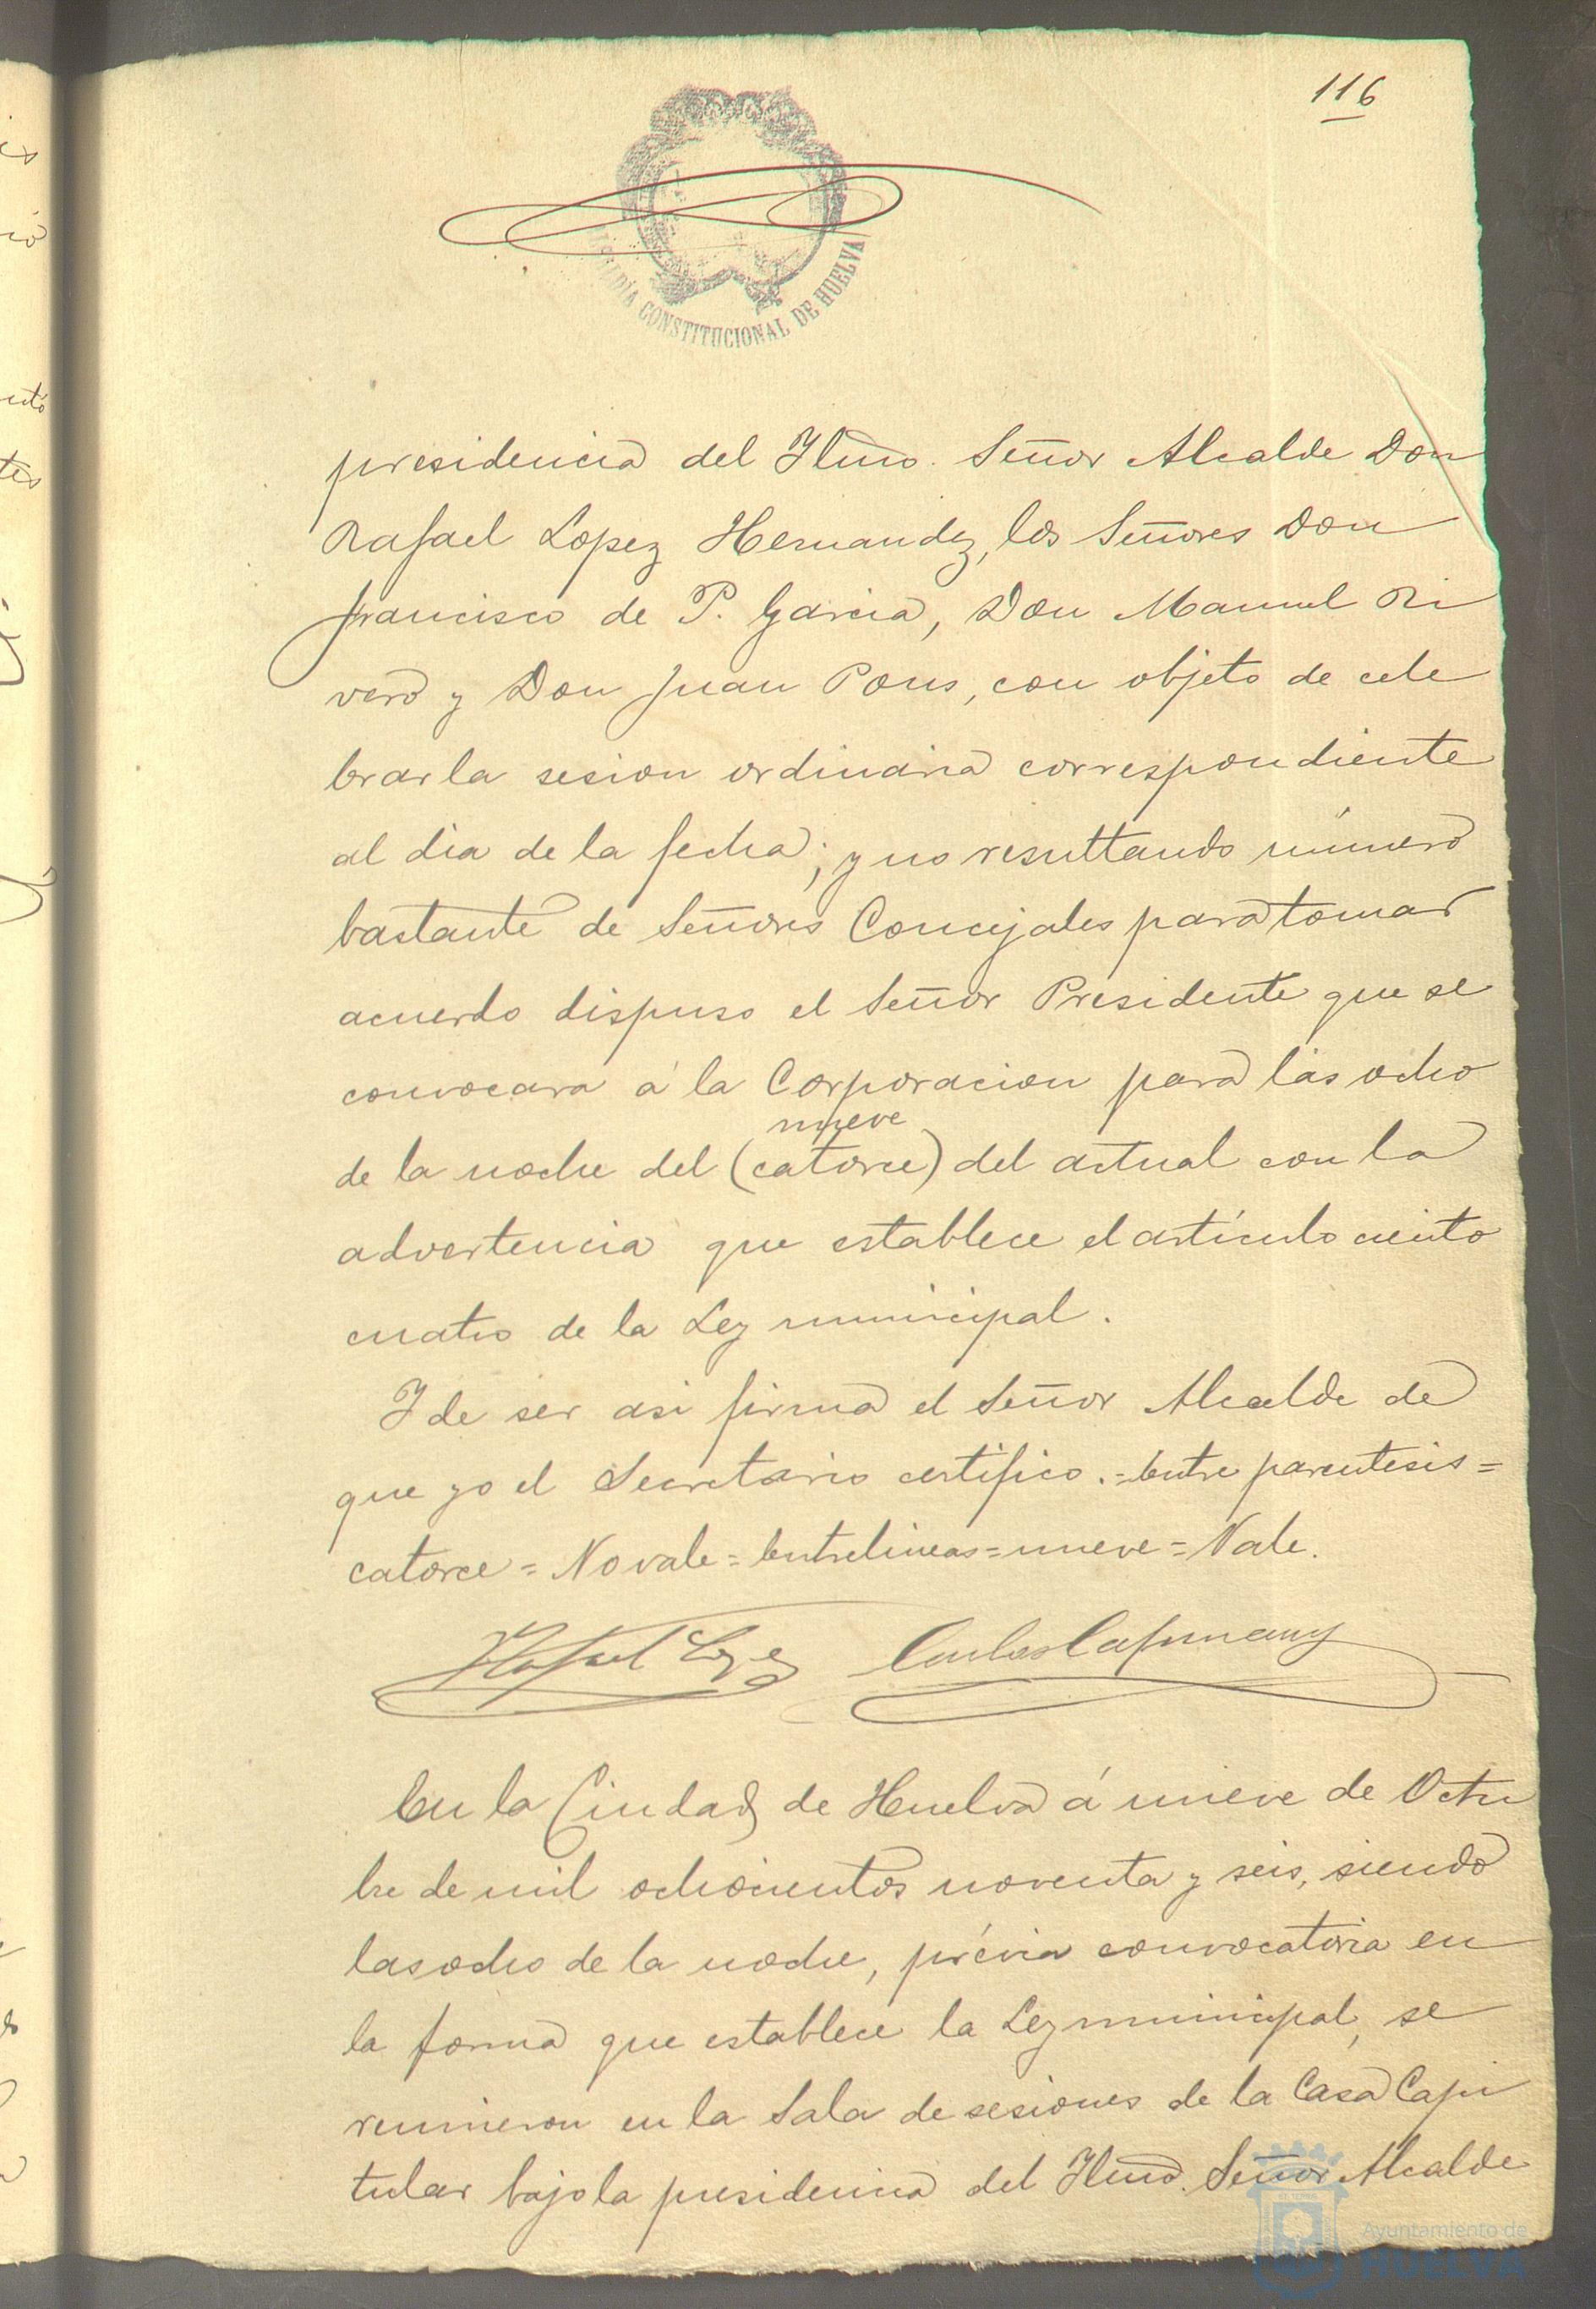 116
ALCALDÍA CONSTITUCIONAL DE HUELVA
presidencia del Yltmo. Señor Alcalde Don
Rafael Lopez Hernandez, los Señores Don
Francisco de P. Garcia, Don Manuel Ri
vero y Don Juan Pons, con objeto de cele
brar la sesion ordinaria correspondiente
al dia de la fecha; y no resultando número
bastante de Señores Concejales para tomar
acuerdo dispuso el Señor Presidente que se
convocara á la Corporacion para las ocho
nueve
de la noche del (catorce) del actual con la
advertencia que establece el artículo ciento
cuatro de la Ley municipal.
Y de ser asi firma el Señor Alcalde de
que yo el Secretario certifico.=Entre parentesis=
catorce=No vale=Entrelineas=nueve=Vale.
Rafael Lopez Carlos Capmany
En la Ciudad de Huelva á nueve de Octu
bre de mil ochocientos noventa y seis, siendo
las ocho de la noche, prévia convocatoria en
la forma que establece la Ley municipal, se
reunieron en la Sala de sesiones de la Casa Capi
tular bajo la presidencia del Yltmo. Señor Alcalde
Ayuntamiento de
HUELVA